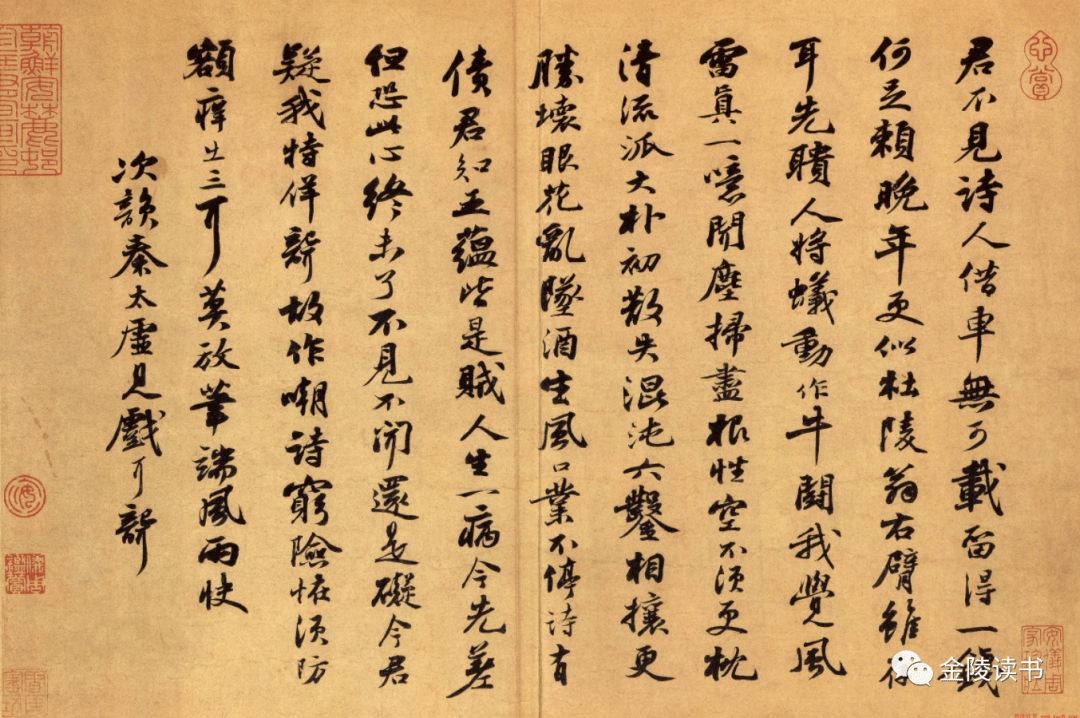 君不見詩人借車無可載留得一錢
何足賴晚年更似杜陵翁右臂雖存
耳先聵人將蟻動作牛鬪我覺風
雷真一噫聞塵掃盡根性空不須更枕
清流派大朴初散失混沌六鑿相攘更
勝壞眼花亂墜酒生風口業不停詩有
債君知五蘊皆是賊人生一病今先差
但恐此心終未了不見不聞還是礙今君
疑我特佯聾故作嘲詩窮險怪須防
額痒出三耳莫放筆端風雨快
次韻秦太虛見戲耳聾
心賞
金陵读书